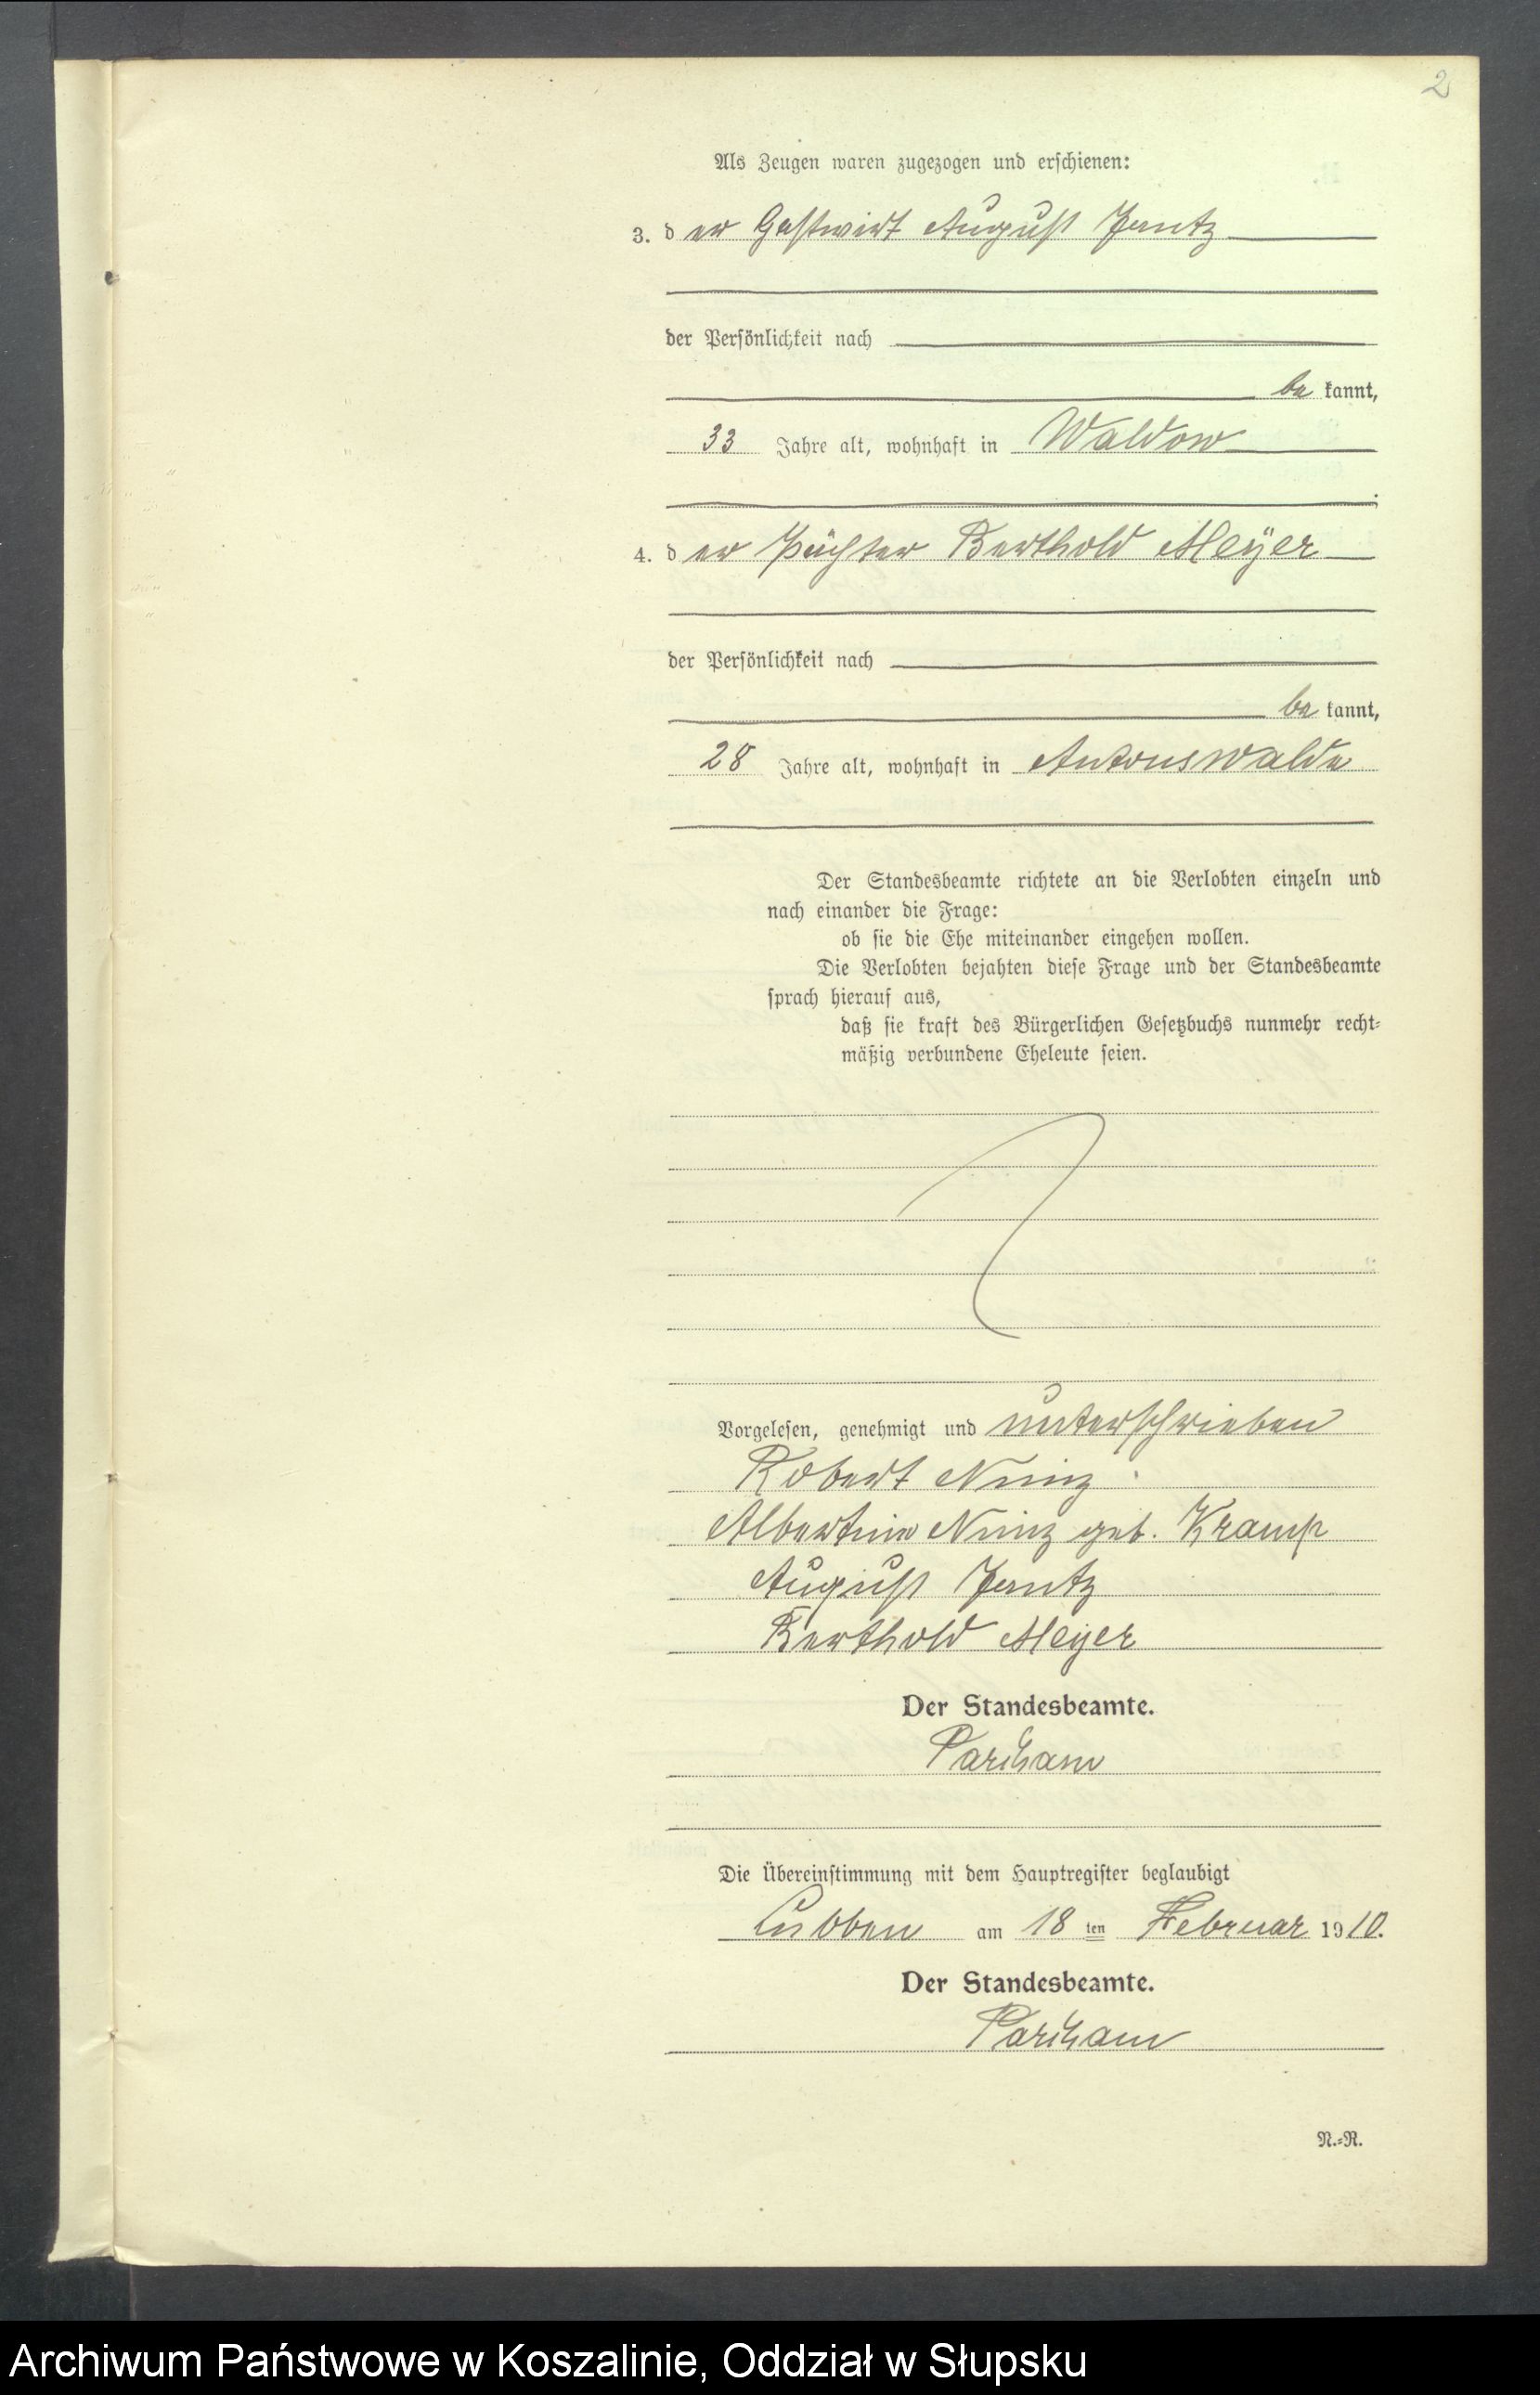 2
Als Zeugen waren zugezogen und erschienen:
3. der Gastwirt August Jantz
der Persönlichkeit nach
be kannt,
33 Jahre alt, wohnhaft in Waldow
;
4. der Pächter Berthold Meÿer
der Persönlichkeit nach
be kannt,
28 Jahre alt, wohnhaft in Antonswalde
Der Standesbeamte richtete an die Verlobten einzeln und
nach einander die Frage:
ob sie die Ehe miteinander eingehen wollen.
Die Verlobten bejahten diese Frage und der Standesbeamte
sprach hierauf aus,
daß sie kraft des Bürgerlichen Gesetzbuchs nunmehr recht-
mäßig verbundene Eheleute seien.
Vorgelesen, genehmigt und unterschrieben
Robert
Albertine geb. Kramp
August Jantz
Berthold Meÿer
Der Standesbeamte.
Die Übereinstimmung mit dem Hauptregister beglaubigt
Lubben am 18 ten Februar 1910.
Der Standesbeamte.
N.-R.
Archiwum Państwowe w Koszalinie, Oddział w Słupsku